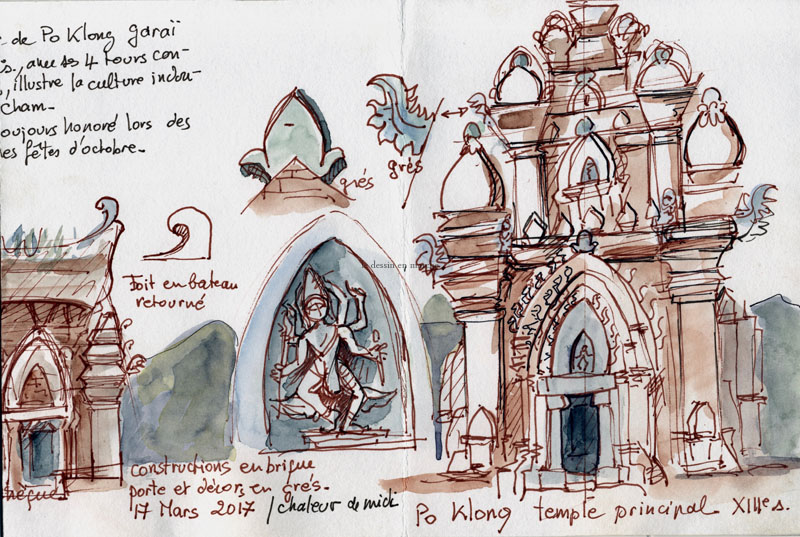 de Po Klong garaï
s., avec ses 4 tours con-
, illustre la culture indou-
cham.
toujours honoré lors des
fêtes d'octobre.
grés
grés
toit en bateau
retourné
dessin en
constructions en brique
porte et décors en grés.
17 Mars 2017 / chaleur de midi
Po Klong temple principal XIIIe s.